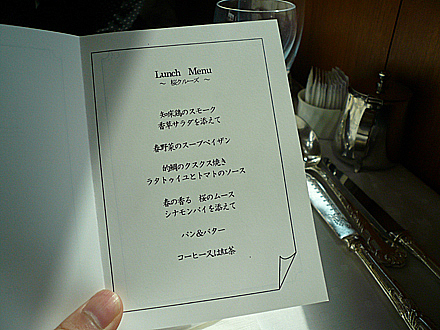 Lunch Menu
～ 桜クルーズ ～
知床鶏のスモーク
香草サラダを添えて
春野菜のスープペイザン
的鯛のクスクス焼き
ラタトゥイユとトマトのソース
春の香る 桜のムース
シナモンパイを添えて
パン&バター
コーヒー又は紅茶